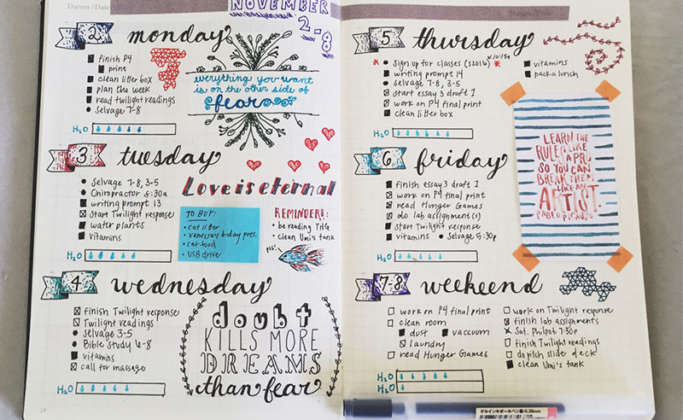 NOVEMBER
2-8
2
monday
finish P4
print
clean litter box
plan the week
read twilight readings
selvage 7-8
H2O
everything you want
is on the other side of
fear
3
tuesday
Selvage 7-8, 3-5
Chiropractor 5:30a
writing prompt 13
Start Twilight response
water plants
vitamins
H2O
Love is eternal
TO BUY:
cat litter
cat food
USB drive
REMINDER!:
be reading
clean Umi's tank
4
wednesday
finish Twilight response
Twilight readings
selvage 3-5
Bible Study 6-8
vitamins
call for massage
H2O
doubt
KILLS MORE
DREAMS
than fear
5
thursday
sign up for classes
writing prompt 14
selvage 7-8, 3-5
start essay 3 draft 1
work on P4 final print
clean litter box
vitamins
pack a lunch
H2O
LEARN THE
RULES LIKE
A PRO,
SO YOU CAN
BREAK THEM
LIKE AN
ARTIST.
PABLO PICASSO
6
friday
finish essay 3 draft 1
work on P4 final print
read Hunger Games
do lab assignment(s)
start Twilight response
vitamins
Selvage 5:30p
H2O
7-8
weekend
work on P4 final print
clean room
dust
vacuum
laundry
read Hunger Games
work on Twilight response
finish lab assignments
Sat. Philpot 7:30p
finish Twilight readings
slide deck
clean Umi's tank
H2O
H2O